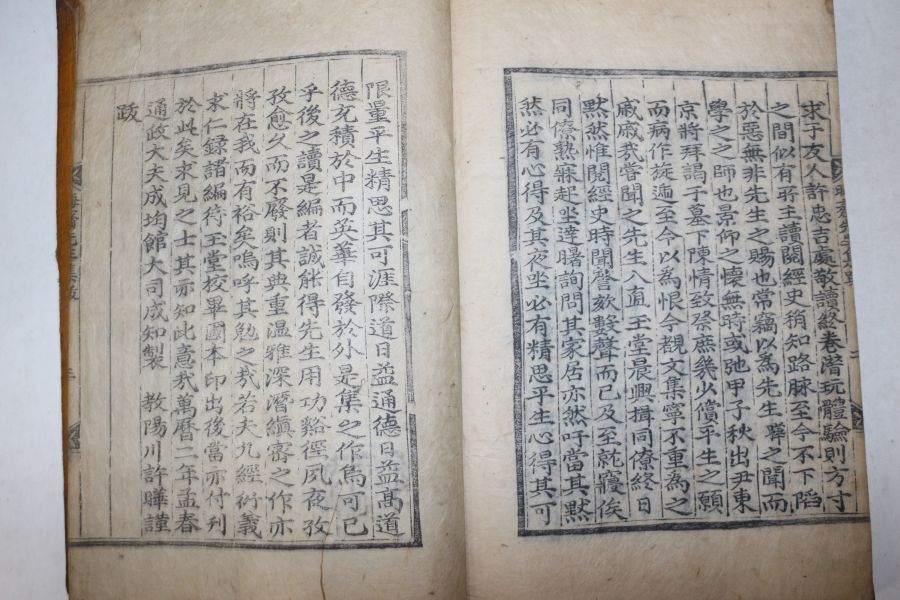 求于友人許忠吉處敬讀終卷潛玩體驗則方寸
之間似有所主讀閱經史稍知路脉至今不下陷
於惡無非先生之賜也當竊以為先生曄之聞而
學之之師也景仰之懷無時或弛甲子秋出尹東
京將拜謁于墓下陳情致祭庶幾少償平生之願
而病作旋遞至今以為恨今覩文集寧不重為之
戚戚哉嘗聞之先生入直玉堂晨興揖同僚終日
默然惟閱經史時聞謦欬數聲而已及至就寢俟
同僚熟寐起坐達曙詢問其家居亦然吁當其默
然必有心得及其夜坐必有精思平生心得其可
限量平生精思其可涯際道日益通德日益高道
德充積於中而英華自發於外是集之作烏可已
乎後之讀是編者誠能得先生用功谿徑夙夜孜
孜愈久而不廢則其典重溫雅深潛縝密之作亦
將在我而有裕矣嗚呼其勉之哉若夫九經衍義
求仁録諸編待玉堂校畢國本印出後當亦付刋
於此矣求見之士其亦知此意哉萬曆二年孟春
通政大夫成均館大司成知製 教陽川許曄謹
跋